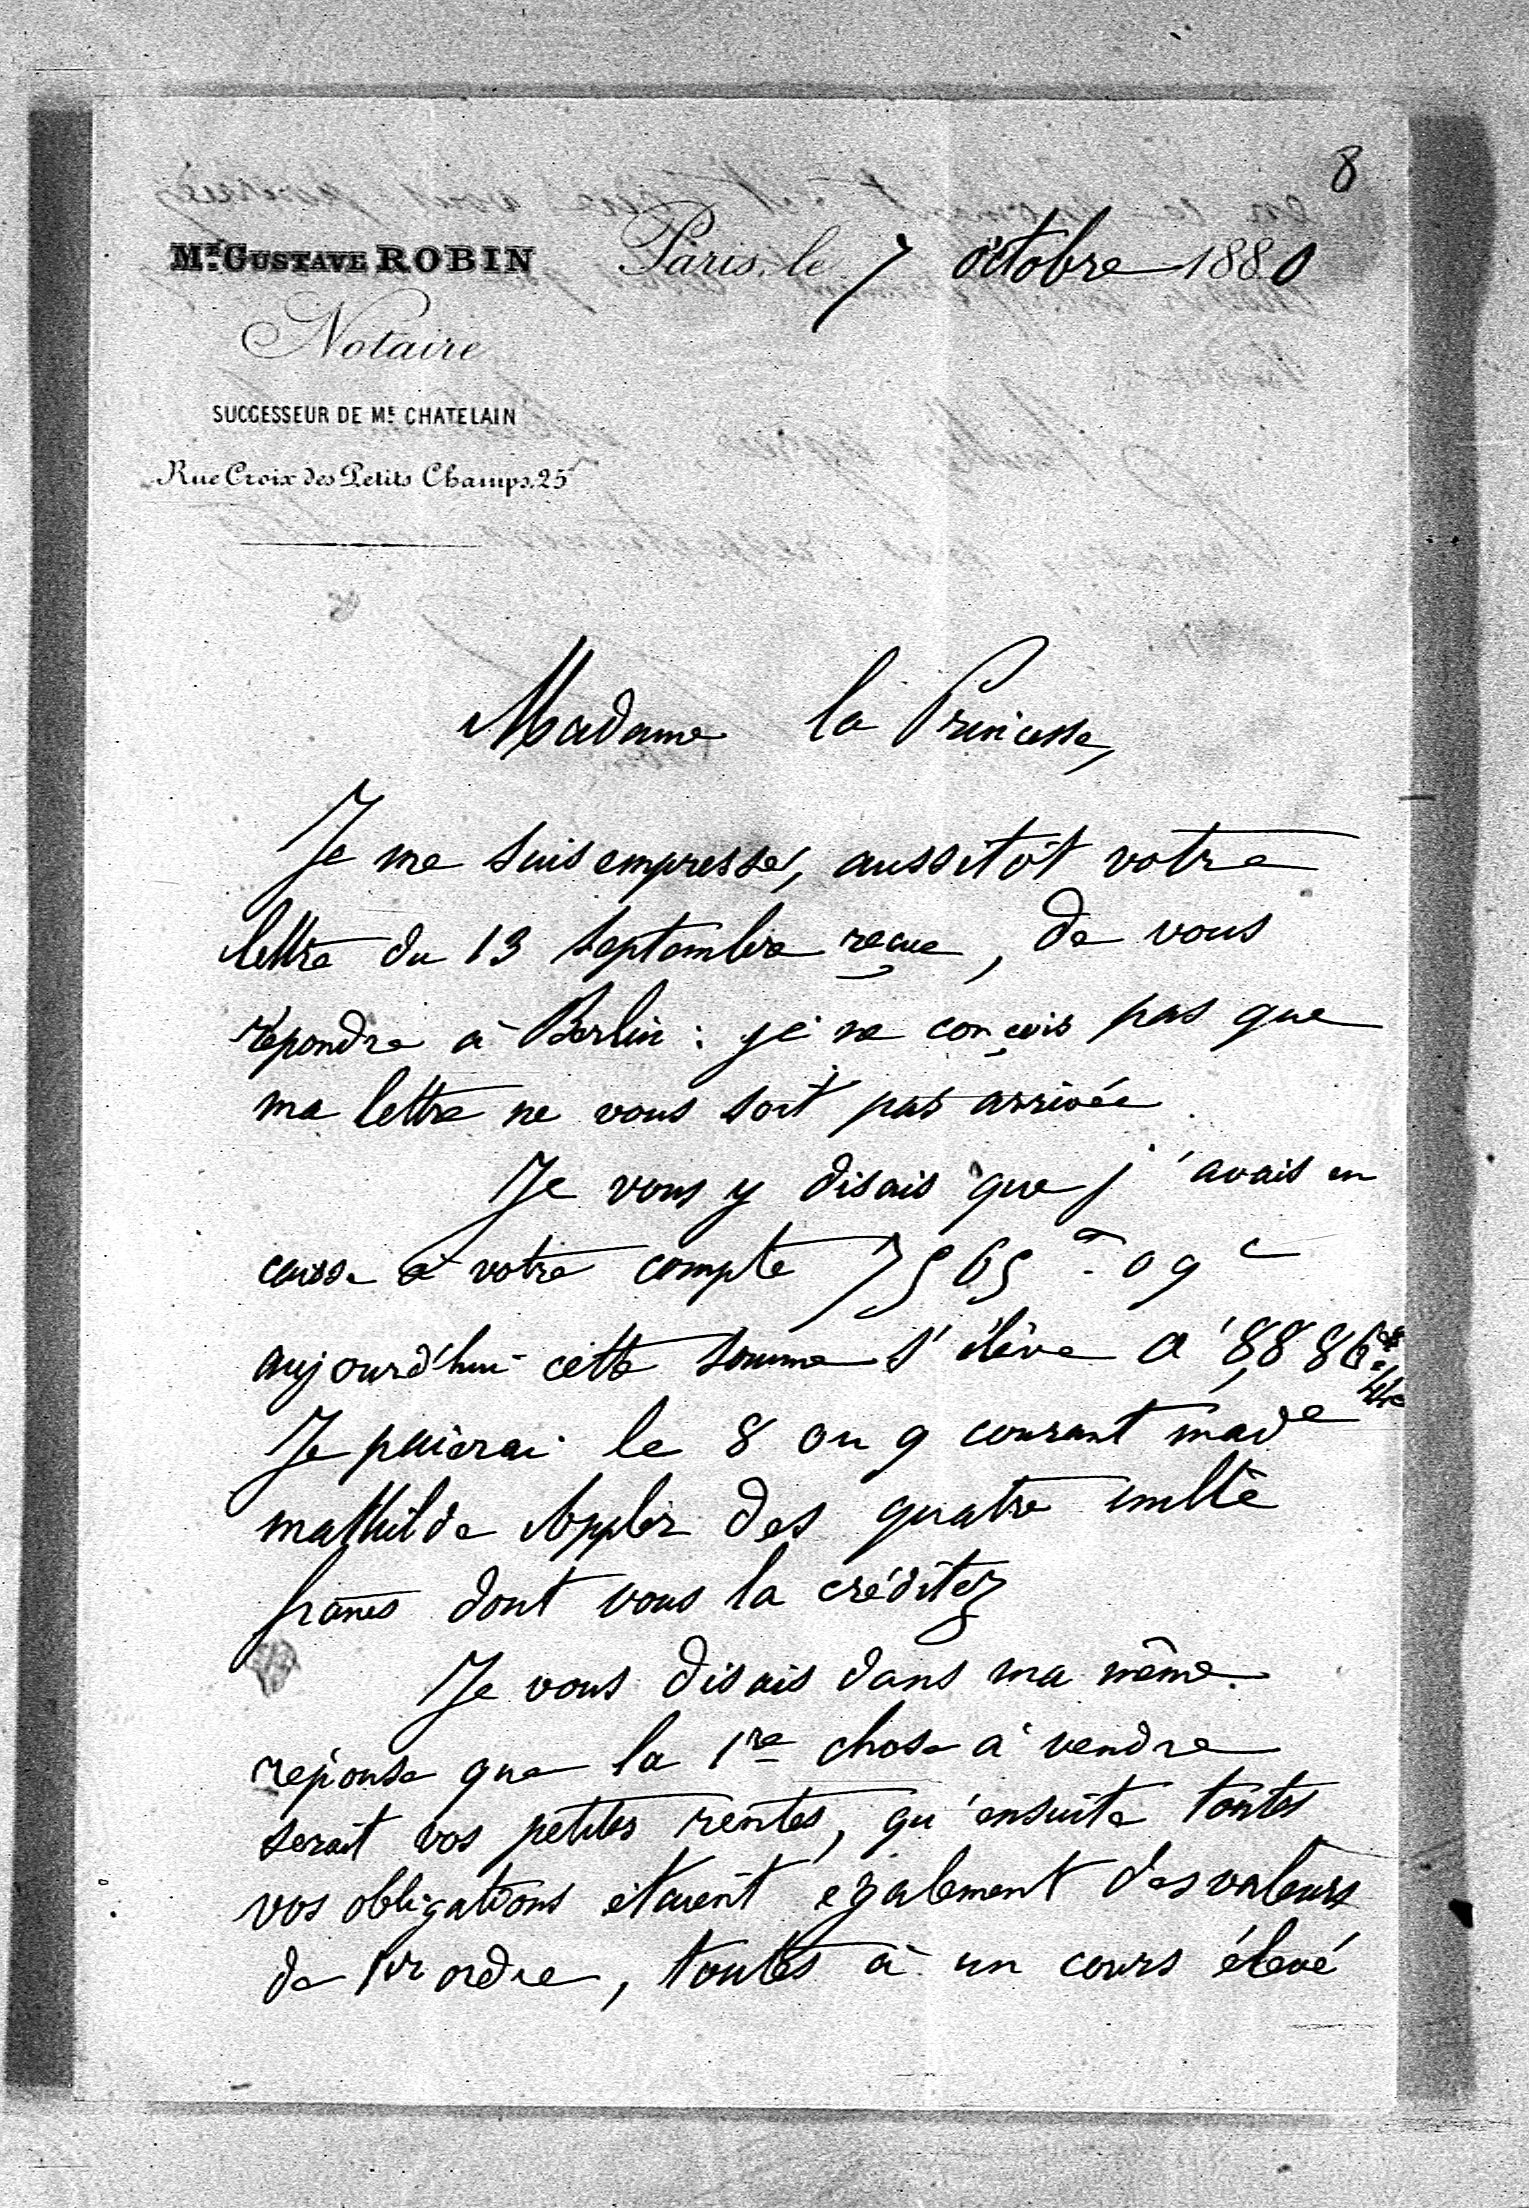 8
Mᴱ GUSTAVE ROBIN
Paris, le 7 octobre 1880
Notaire
SUCCESSEUR DE Mᴱ CHATELAIN
Rue Croix des Petits Champs, 25
Madame la Princesse,
Je me suis empressé, aussitôt votre
lettre du 13 septembre reçue, de vous
répondre à Berlin : je ne conçois pas que
ma lettre ne vous soit pas arrivée.
Je vous y disais que j'avais en
caisse à votre compte 7565 f. 09 c
aujourd'hui cette somme s'élève à 8,886 f
Je paierai le 8 ou 9 courant made
mathilde Appler des quatre mille
francs dont vous la créditez
Je vous disais dans ma même
réponse que la 1re chose à vendre
serait vos petites rentes, qu'ensuite toutes
vos obligations étaient également des valeurs
de 1er ordre, toutes à un cours élevé